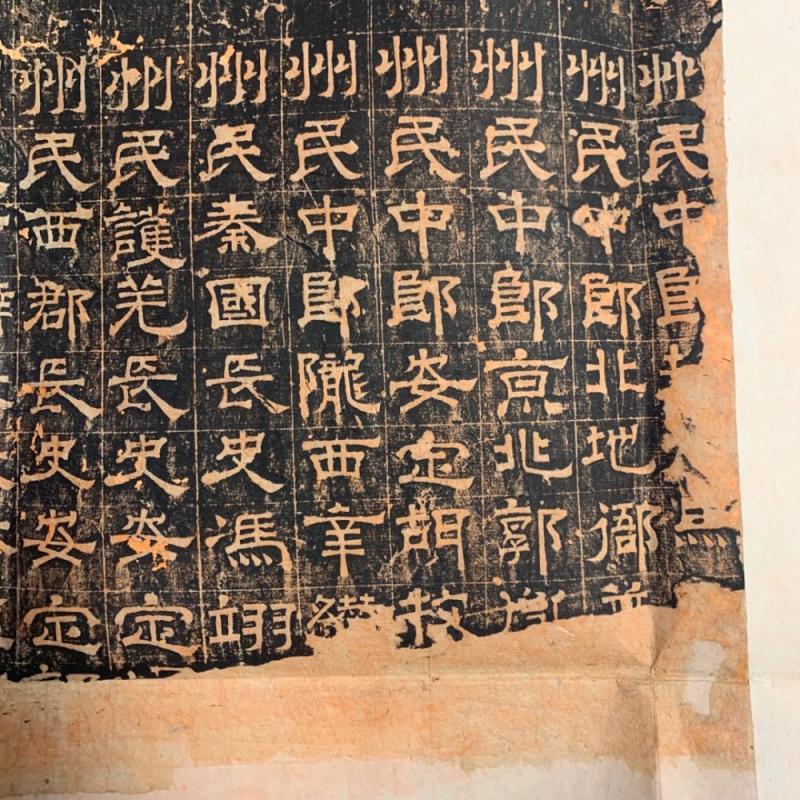 州民中
州民中郎北地
州民中郎京兆郭
州民中郎安定胡
州民中郎隴西辛
州民秦國長史馮翊
州民護羌長史安定
州民西郡長史安定